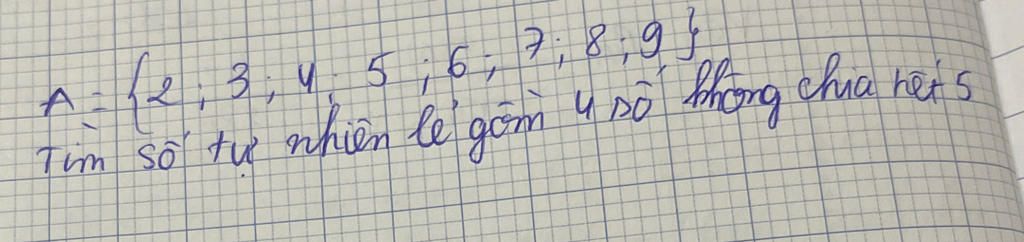 A = {2; 3; 4; 5; 6; 7; 8; 9}
Tìm số tự nhiên lẻ gồm 4 số không chia hết 5